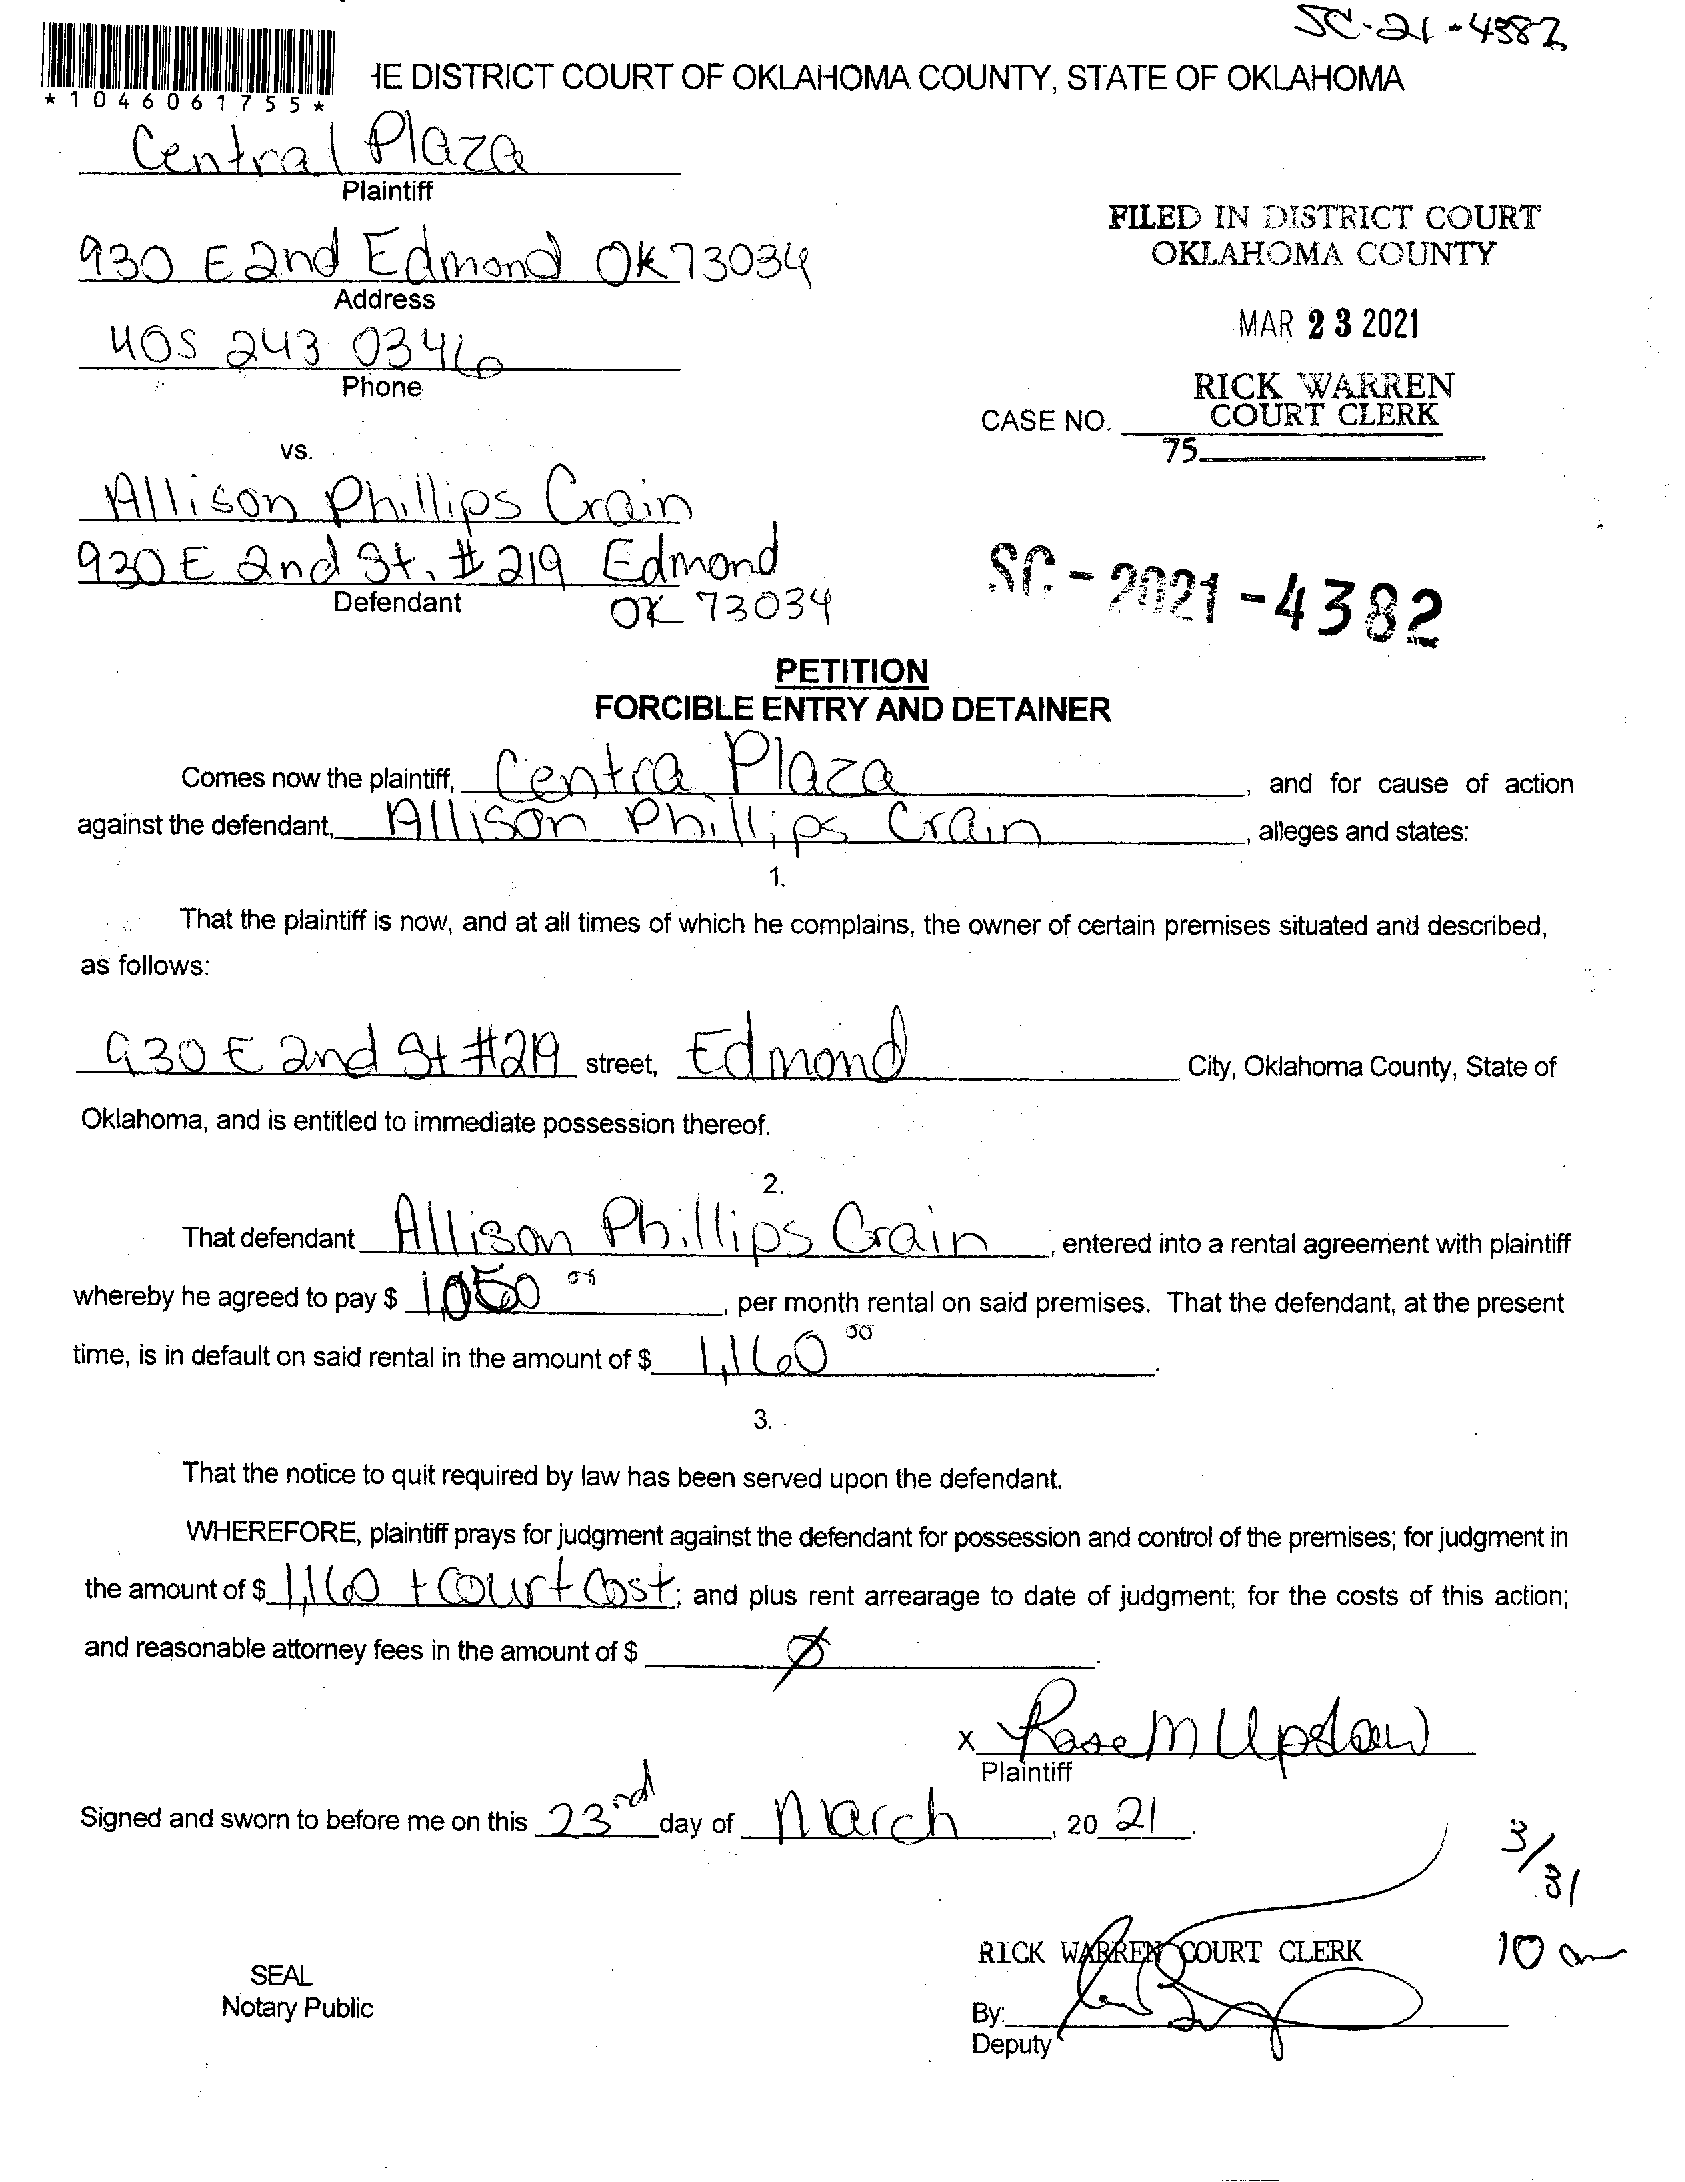 SC-21-4382
*1046061755*
IE DISTRICT COURT OF OKLAHOMA COUNTY, STATE OF OKLAHOMA
Central Plaza
Plaintiff
930 E 2nd Edmond OK 73034
Address
405 243 0346
Phone
FILED IN DISTRICT COURT
OKLAHOMA COUNTY
MAR 23 2021
RICK WARREN
COURT CLERK
CASE NO.
75
vs.
Allison Phillips Crain
930 E 2nd St. #219 Edmond
OK 73034
Defendant
SC-2021-4382
PETITION
FORCIBLE ENTRY AND DETAINER
Comes now the plaintiff, Centra Plaza, and for cause of action
against the defendant, Allison Phillips Crain, alleges and states:
1.
That the plaintiff is now, and at all times of which he complains, the owner of certain premises situated and described,
as follows:
930 E 2nd St #219 street, Edmond City, Oklahoma County, State of
Oklahoma, and is entitled to immediate possession thereof.
2.
That defendant Allison Phillips Crain, entered into a rental agreement with plaintiff
whereby he agreed to pay $ 1,050, per month rental on said premises. That the defendant, at the present
time, is in default on said rental in the amount of $ 1,160 00.
3.
That the notice to quit required by law has been served upon the defendant.
WHEREFORE, plaintiff prays for judgment against the defendant for possession and control of the premises; for judgment in
the amount of $ 1,160 + Court Cost; and plus rent arrearage to date of judgment; for the costs of this action;
and reasonable attorney fees in the amount of $ Ø.
x Rose M Upshaw
Plaintiff
Signed and sworn to before me on this 23rd day of March, 20 21.
3/31
10 am
RICK WARREN COURT CLERK
SEAL
Notary Public
By:
Deputy